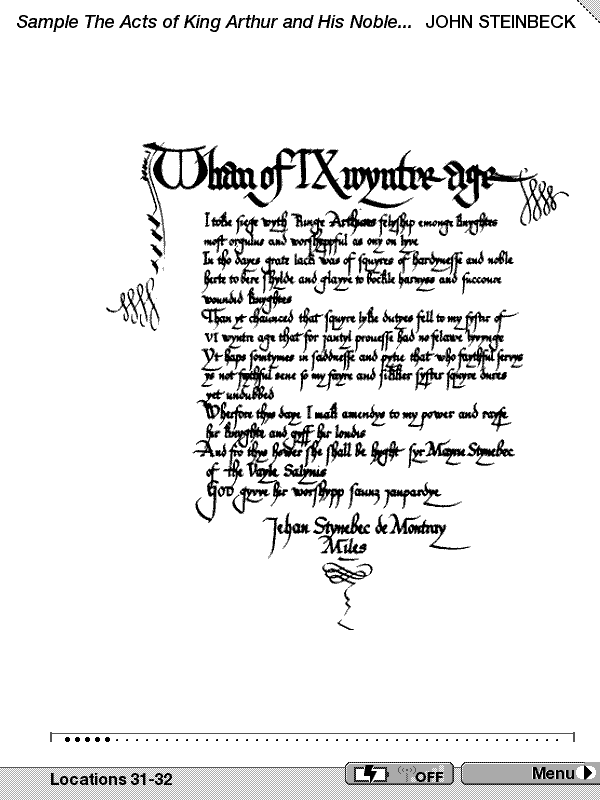 Sample The Acts of King Arthur and His Noble... JOHN STEINBECK
Whan of IX wyntre age
I toke siege wyth Kinge Arthurs felyship emonge knyghtes
most orgulus and worshyppful as ony on lyve
In tho dayes grate lack was of squyres of hardynesse and noble
herte to bere shylde and glayve to bockle harnyss and succoure
woundid knyghtes
Than yt chaunced that squyre lyke dutyes fell to my syster of
VI wyntre age that for jantyl prouesse had no felawe lyvynge
Yt haps somtymes in saddnesse and pytie that who faythful servys
ys not faythful sene so my fayre and sikker syster squyre dures
yet undubbed
Wherfore thys daye I mak amendys to my power and rayse
hir knyghte and gyff hir loudis
And fro thys hower she shall be hyght syr Mayrie Stynebec
of the Vayle Salynis
GOD gyvve hir worshypp saunz jaupardye
Jehan Stynebec de Montray
Miles
Locations 31-32 OFF Menu